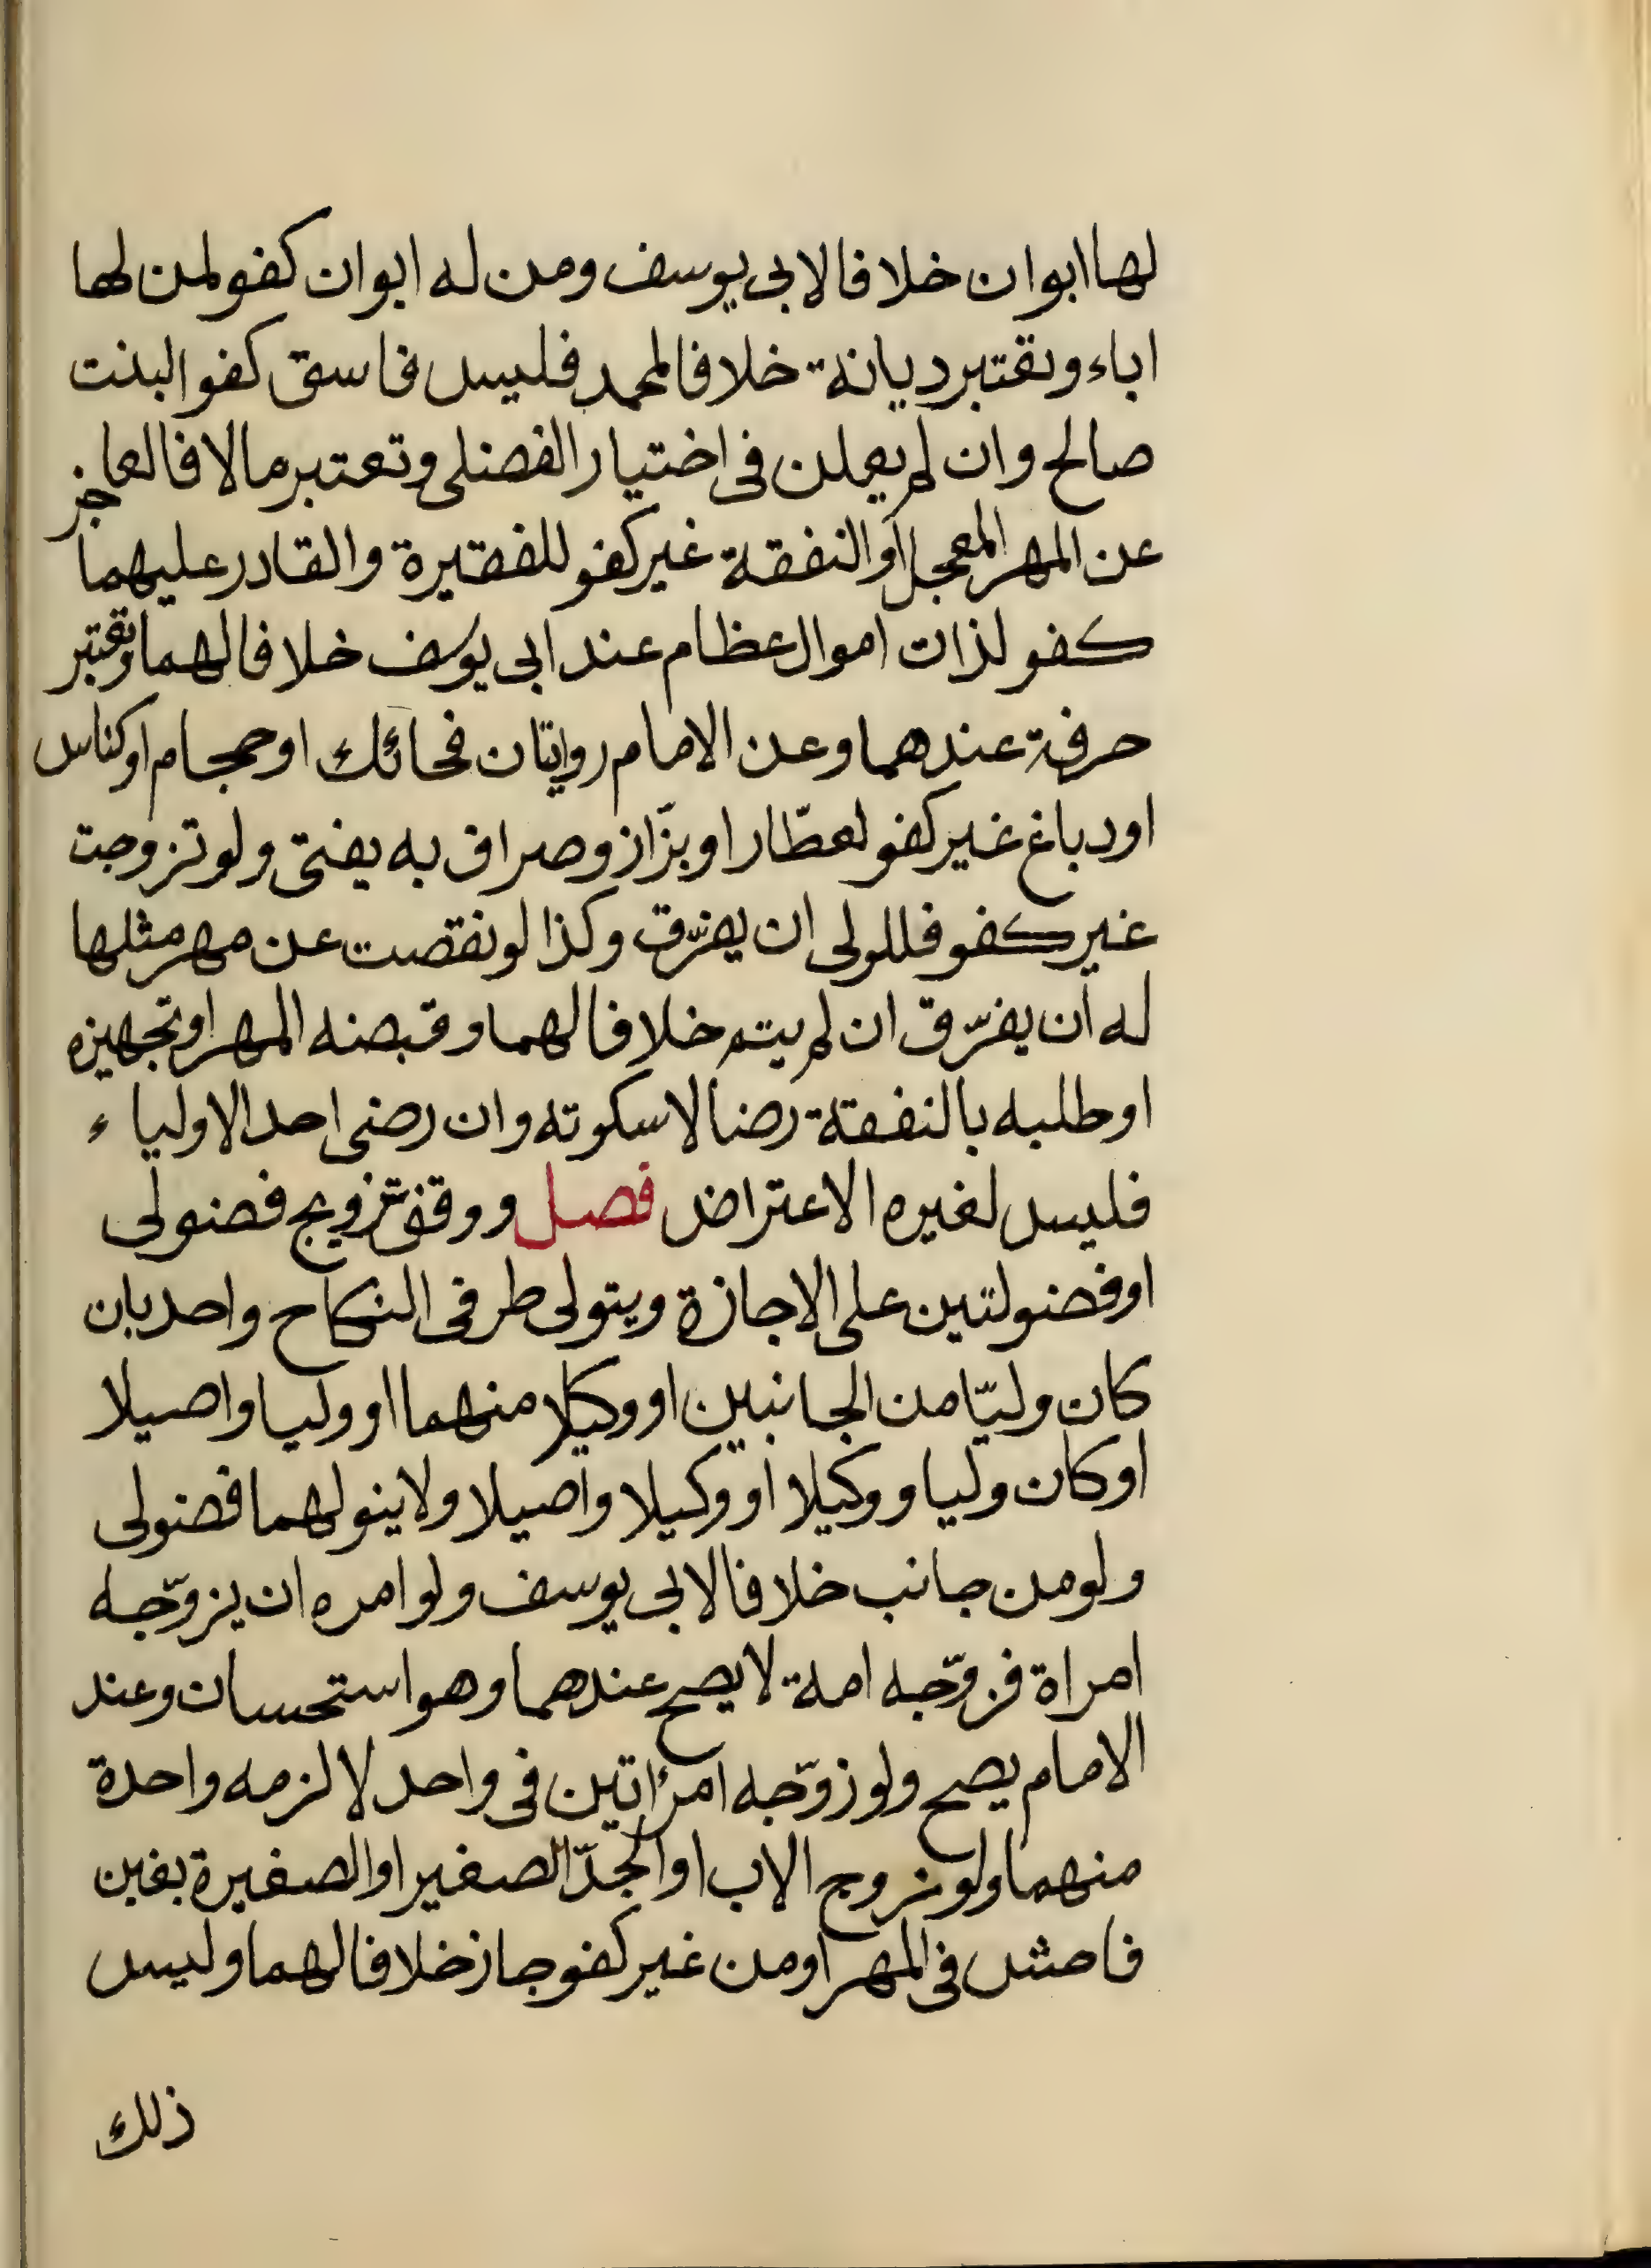 لها ابوان خلافا لابى يوسف ومن له ابوان كفو لمن لها
اباء وتعتبر ديانة خلافا لمحمد فليس فاسق كفوا لبنت
صالح وان لم يعلن فى اختيار الفضلى وتعتبر مالا فالعاجز
عن المهر المعجل أو النفقة غير كفو للفقيرة والقادر عليهما
كفو لذات اموال عظام عند ابى يوسف خلافا لهما وتعتبر
حرفة عندهما وعن الامام روايتان فحائك او حجام او كناس
او دباغ غير كفو لعطّار او بزّاز وصراف به يفتى ولو تزوجت
غير كفو فللولى ان يفرّق وكذا لو نقصت عن مهر مثلها
له ان يفرّق ان لم يتم خلافا لهما وقبضه المهر او تجهيزه
او طلبه بالنفقة رضا لا سكوته وان رضى احد الاولياء
فليس لغيره الاعتراض فصل ووقف تزويج فضولى
او فضولتين على الاجازة ويتولى طرفى النكاح واحد بان
كان وليّا من الجانبين او وكيلا منهما او وليا واصيلا
او كان وليا ووكيلا أو وكيلا واصيلا ولا يتولهما فضولى
ولو من جانب خلافا لابى يوسف ولو امره ان يزوّجه
امراة فزوّجه امة لا يصح عندهما وهو استحسان وعند
الامام يصح ولو زوّجه امرأتين فى واحد لا لزمه واحدة
منهما ولو تزوج الاب او الجدّ الصغير او الصغيرة بغبن
فاحش فى المهر او من غير كفو جاز خلافا لهما وليس
ذلك